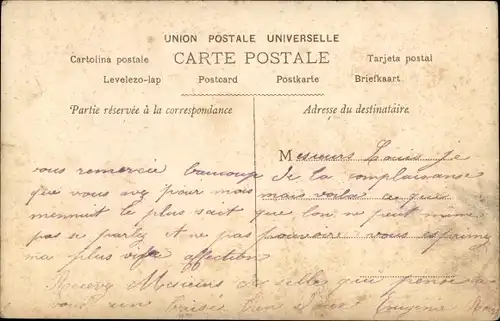 UNION POSTALE UNIVERSELLE
CARTE POSTALE
Cartolina postale Tarjeta postal
Levelezo-lap Postcard Postkarte Briefkaart
Partie réservée à la correspondance Adresse du destinataire.
Mesieurs Louis Je
vous remercie baucoup de la complaisanse
que vous avez pour mois mais voila ce que
mennuit le plus sait que lon ne peut même
pas se parlez et ne pas pouvoire vous exprime
ma plus vive affection
Recevez Mesieurs de selles qui pense
vous un baisée bien Eugenie